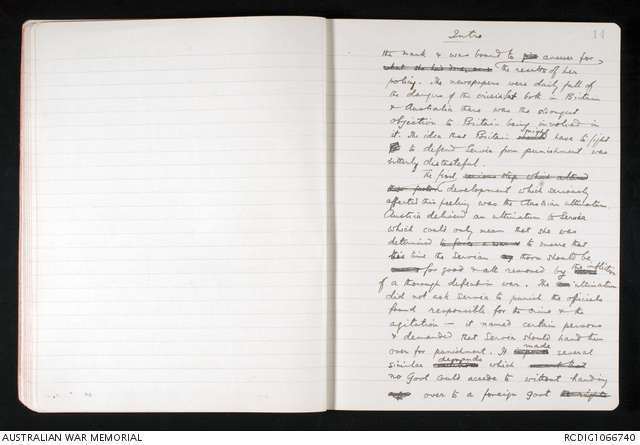 Intro 14
the mark & was bound to answer for
what she had done, and the results of her
policy. The newspapers were daily full of
the danger of the crisis; but both in Britain
& Australia there was the strongest
objection to Britain being involved in
it. The idea that Britain might have to fight
to defend Servia from punishment was
utterly distasteful.
The first serious step which altered
development which seriously
affected this feeling was the Austrian ultimatum.
Austria delivered an ultimatum to Servia
which could only mean that she was
determined to force a war to insure that
this time the Servian thorn should be
for good & all removed by the infliction
of a thorough defeat in war. The ultimatum
did not ask Servia to punish the officials
found responsible for the crime & the
agitation – it named certain persons
& demanded that Servia should hand them
over for punishment. It made several
similar demands which
no Govt could accede to without handing
over to a foreign govt its rights
AUSTRALIAN WAR MEMORIAL
RCDIG1066740